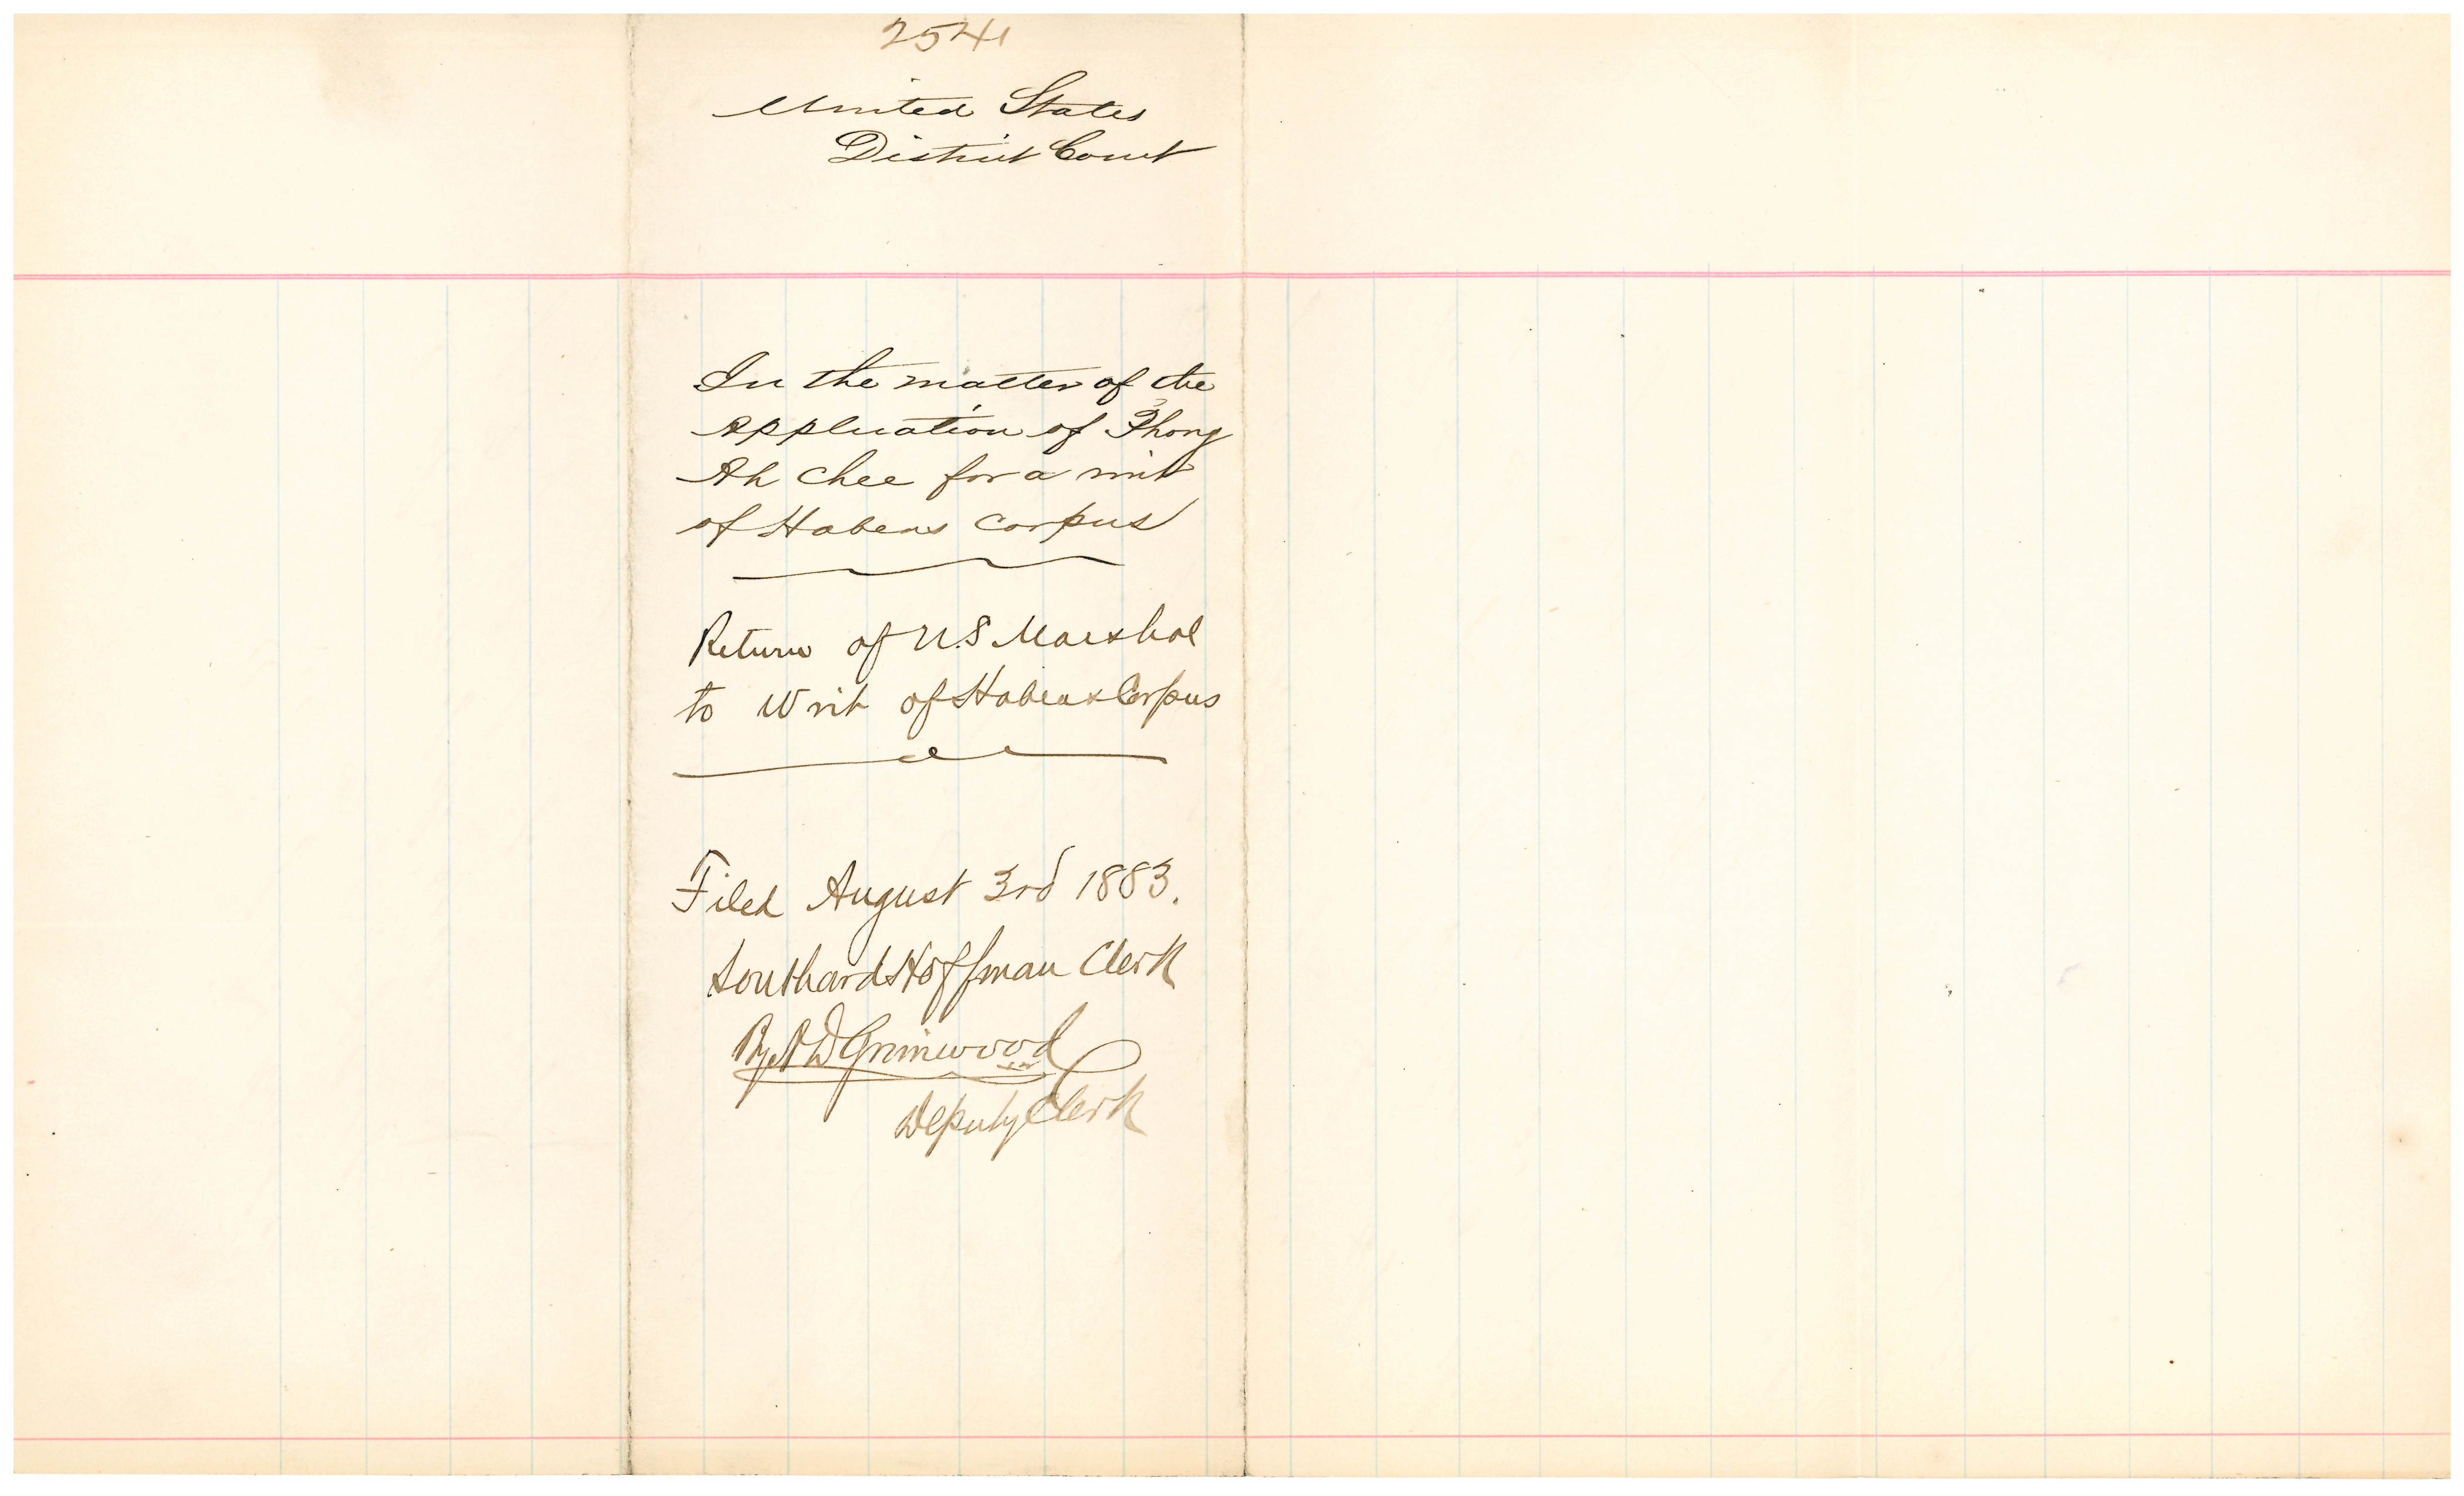 2541
United States
District Court
In the matter of the
Application of Phong
Ah Chee for a writ
of Habeas Corpus
Return of U.S Marshal
to Writ of Habeas Corpus
Filed August 3rd 1883.
Southard Hoffman Clerk
By Grimwood
Deputy Clerk